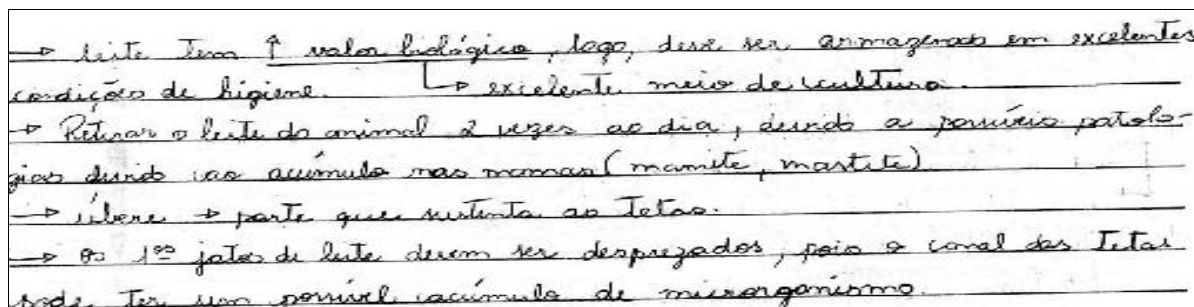 → leite tem ↑ valor biológico, logo, deve ser armazenado em excelentes
condições de higiene. ↳ excelente meio de cultura.
→ Retirar o leite do animal 2 vezes ao dia, devido a possíveis patolo-
gias devido ao acúmulo nas mamas (mamite, mastite)
→ úbere → parte que sustenta as tetas.
→ os 1ºs jatos de leite devem ser desprezados, pois o canal das tetas
pode ter um possível acúmulo de microrganismo.